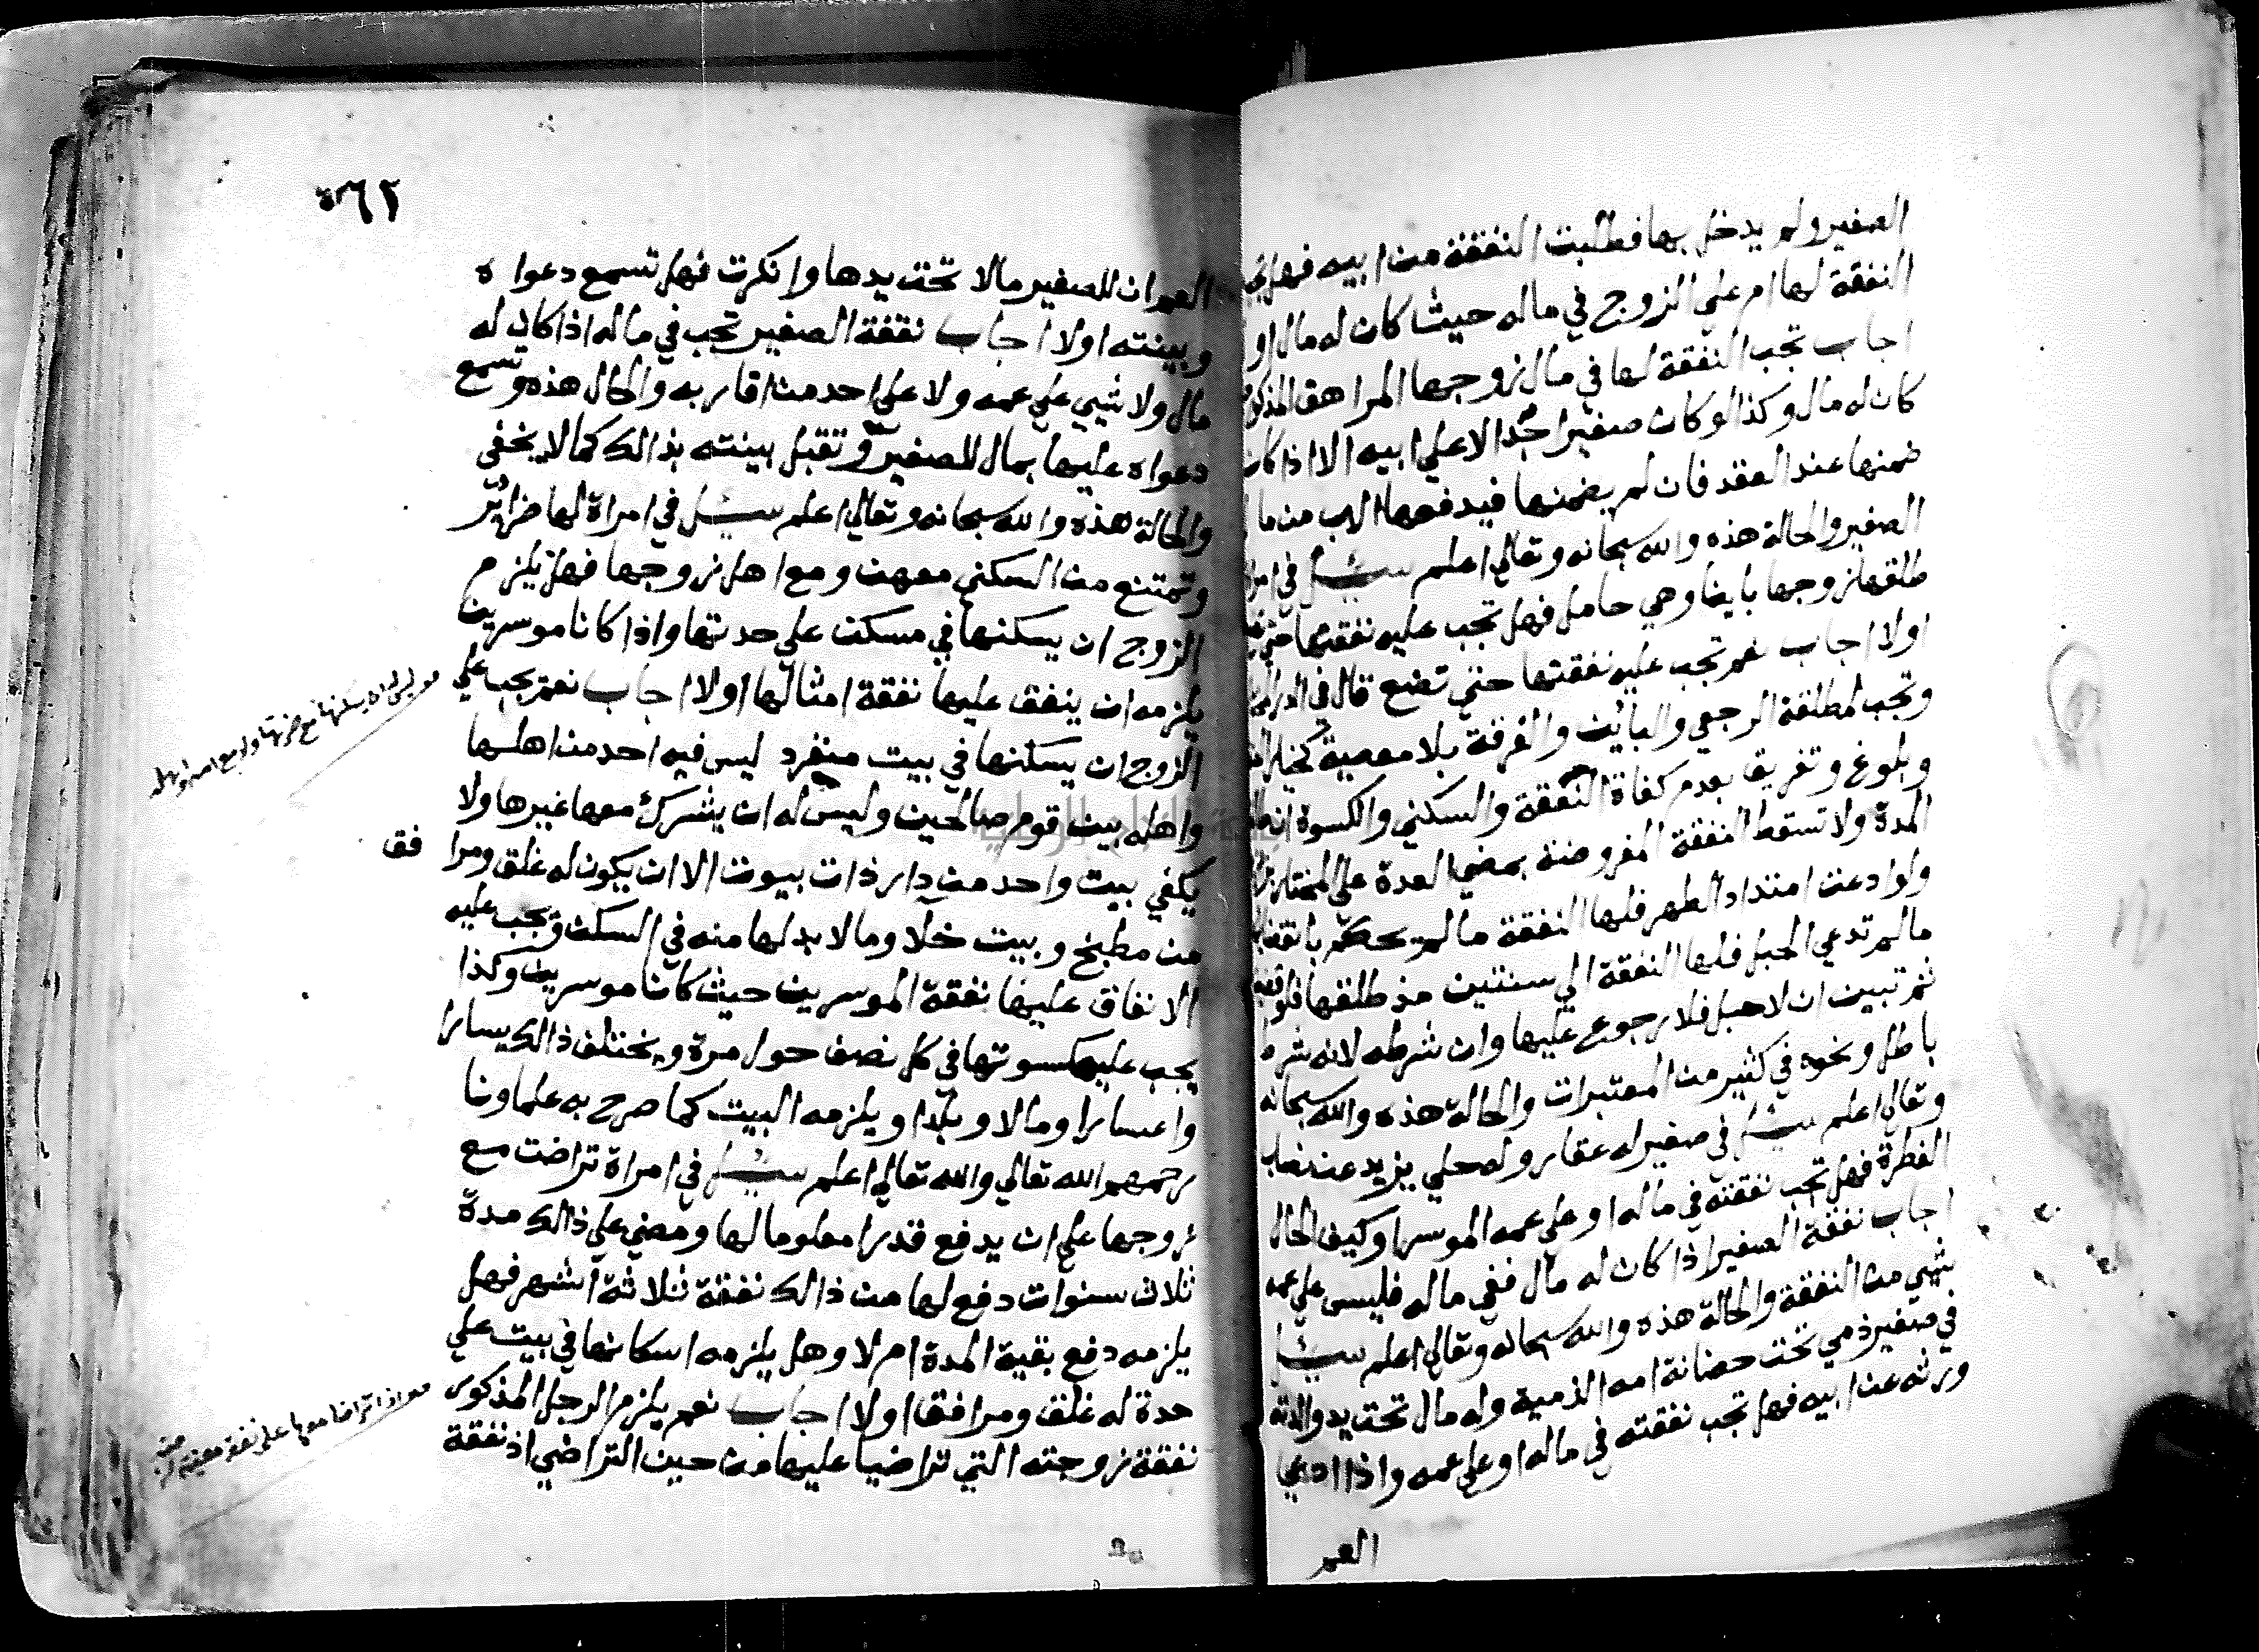 الصغير ولم يدخل بها فطلبت النفقة من ابيه فهل تجب
النفقة لها ام علي الزوج في ماله حيث كان له مال او
اجاب تجب النفقة لها في مال زوجها المراهق المذكور
كان له مال وكذا لو كان صغيرا جدا لا علي ابيه الا اذا كان
ضمنها عند العقد فان لم يضمنها فيدفعها الاب من ما
الصغير والحالة هذه والله سبحانه وتعالي اعلم سئل في امراة
طلقها زوجها باينا وهي حامل فهل تجب عليه نفقتها حتي
اولا اجاب نعم تجب عليه نفقتها حتي تضع قال في الدر
وتجب لمطلقة الرجعي والباين والفرقة بلا معصية كخيار
وبلوغ وتفريق بعدم كفاة النفقة والسكني والكسوة ان
المدة ولا تسقط النفقة المفروضة بمضي العدة علي المختار
ولو ادعت امتداد الطهر فلها النفقة ما لم يحكم بانقضا
ما لم تدعي الحبل فلها النفقة الي سنتين منذ طلقها فلو
ثم تبين ان لا حبل فلا رجوع عليها وان شرطه لانه شرط
باطل ونحوه في كثير من المعتبرات والحالة هذه والله سبحانه
وتعالي اعلم سئل في صغير له عقار ومحلي يزيد عن نصاب
الفطرة فهل تجب نفقته في ماله او علي عمه الموسر وكيف الحال
اجاب نفقة الصغير اذا كان له مال ففي ماله فليس علي عمه
شيي من النفقة والحالة هذه والله سبحانه وتعالي اعلم سئل
في صغير ذمي تحت حضانة امه الذمية وله مال تحت يد والدته
ورثه عن ابيه فهل تجب نفقته في ماله او علي عمه واذا ادعي
العم
٦٢
العم ان للصغير مالا تحت يدها وانكرت فهل تسمع دعواه
وبينته اولا اجاب نفقة الصغير تجب في ماله اذا كان له
مال ولا شيي علي عمه ولا علي احد من اقاربه والحال هذه وتسمع
دعواه عليها بمال للصغير وتقبل بينته بذالك كما لا يخفي
والحالة هذه والله سبحانه وتعالي اعلم سئل في امراة لها ضراير
وتمتنع من السكني معهن ومع اهل زوجها فهل يلزم
الزوج ان يسكنها في مسكن علي حدتها واذا كانا موسرين
يلزمه ان ينفق عليها نفقة امثالها اولا اجاب نعم يجب علي
الزوج ان يسكنها في بيت منفرد ليس فيه احد من اهلها
واهله بين قوم صالحين وليس له ان يشرك معها غيرها ولا
يكفي بيت واحد من دار ذات بيوت الا ان يكون له غلق ومرافق
من مطبخ وبيت خلا وما لا بد لها منه في السكن وتجب عليه
الانفاق عليها نفقة الموسرين حيث كانا موسرين وكذا
يجب عليه كسوتها في كل نصف حول مرة ويختلف ذالك يسارا
واعسارا ومالا وبلدا ويلزمه البيت كما صرح به علماونا
رحمهم الله تعالي والله تعالي اعلم سئل في امراة تراضت مع
زوجها علي ان يدفع قدرا معلوما لها ومضي علي ذالك مدة
ثلاث سنوات دفع لها من ذالك نفقة ثلاثة اشهر فهل
يلزمه دفع بقية المدة ام لا وهل يلزمه اسكانها في بيت علي
حدة له غلق ومرافق اولا اجاب نعم يلزم الرجل المذكور
نفقة زوجته التي تراضيا عليها من حين التراضي اذ نفقة
ليس له ان يسكنها مع ضرتها ولا مع
اذا تراضا معها علي نفقة معينة